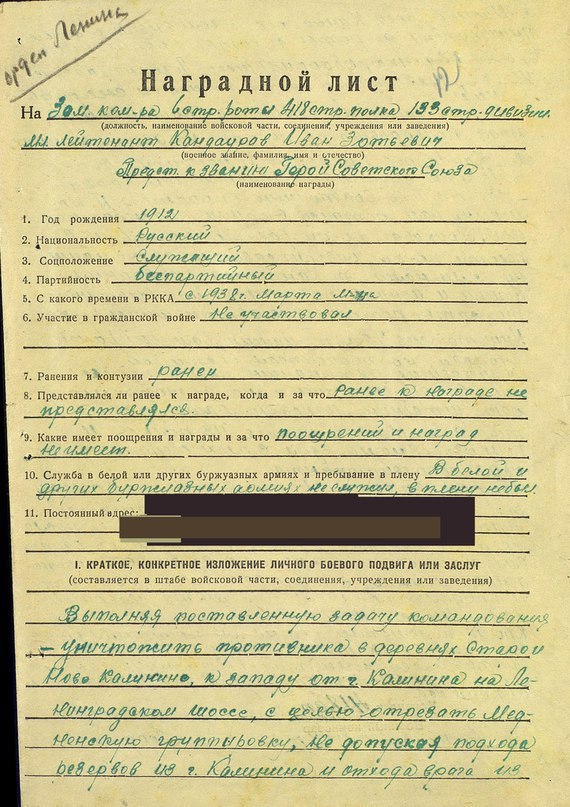 орден Ленина
Наградной лист
На Зам. ком-ра 6 стр. роты 418 стр. полка 133 стр. дивизии.
(должность, наименование войсковой части, соединения, учреждения или заведения)
мл. лейтенант Кандауров Иван Зотьевич
(военное звание, фамилия, имя и отчество)
Предст. к званию Герой Советского Союза
(наименование награды)
1. Год рождения 1912
2. Национальность Русский
3. Соцположение Служащий
4. Партийность беспартийный
5. С какого времени в РККА с 1938 г. Марта М-ца
6. Участие в гражданской войне Не участвовал
7. Ранения и контузии ранен
8. Представлялся ли ранее к награде, когда и за что Ранее к награде не
представлялся.
9. Какие имеет поощрения и награды и за что поощрений и наград
не имеет.
10. Служба в белой или других буржуазных армиях и пребывание в плену В белой и
других буржуазных армиях не служил, в плену не был
11. Постоянный адрес:
I. КРАТКОЕ, КОНКРЕТНОЕ ИЗЛОЖЕНИЕ ЛИЧНОГО БОЕВОГО ПОДВИГА ИЛИ ЗАСЛУГ
(составляется в штабе войсковой части, соединения, учреждения или заведения)
Выполняя поставленную задачу командования
– уничтожить противника в деревнях Старой
Ново Калинино, к западу от г. Калинина на Ле-
нинградском шоссе, с целью отрезать Мед-
ненскую группировку, не допуская подхода
резервов из г. Калинина и отхода врага из